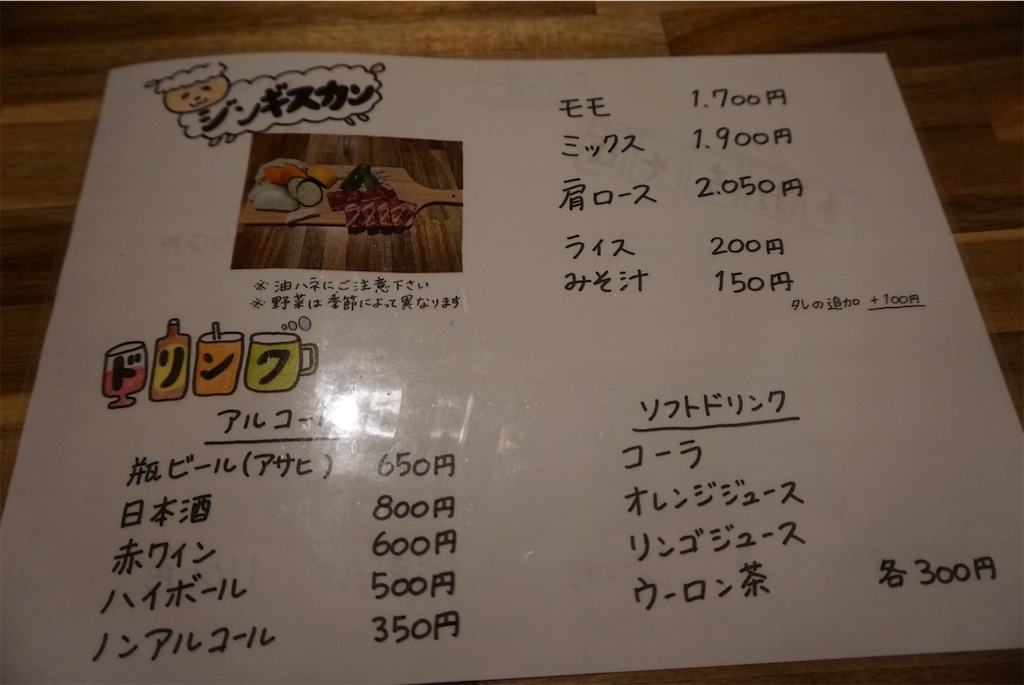 ジンギスカン
モモ 1.700円
ミックス 1.900円
肩ロース 2.050円
ライス 200円
みそ汁 150円
タレの追加 +100円
※ 油ハネにご注意下さい
※ 野菜は季節によって異なります
ドリンク
アルコール
瓶ビール(アサヒ) 650円
日本酒 800円
赤ワイン 600円
ハイボール 500円
ノンアルコール 350円
ソフトドリンク
コーラ
オレンジジュース
リンゴジュース
ウーロン茶 各300円